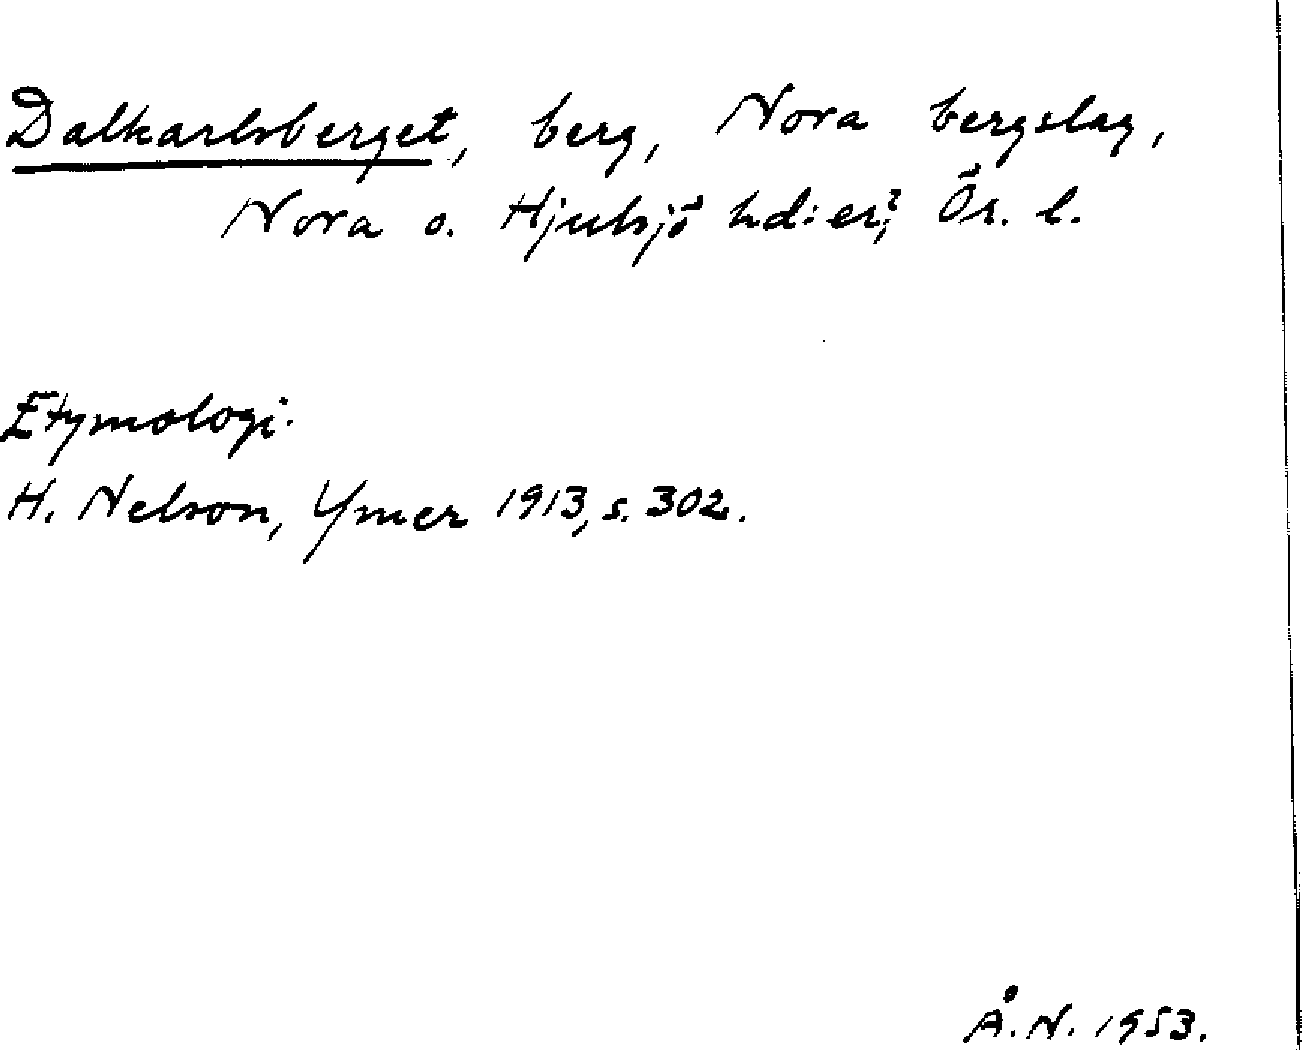 Dalkarlsberget, berg, Nora bergslag,
Nora o. Hjulsjö hd:er?, Ör. l.
Etymologi:
H. Nelson, Ymer 1913, s. 302.
Å.N. 1953.